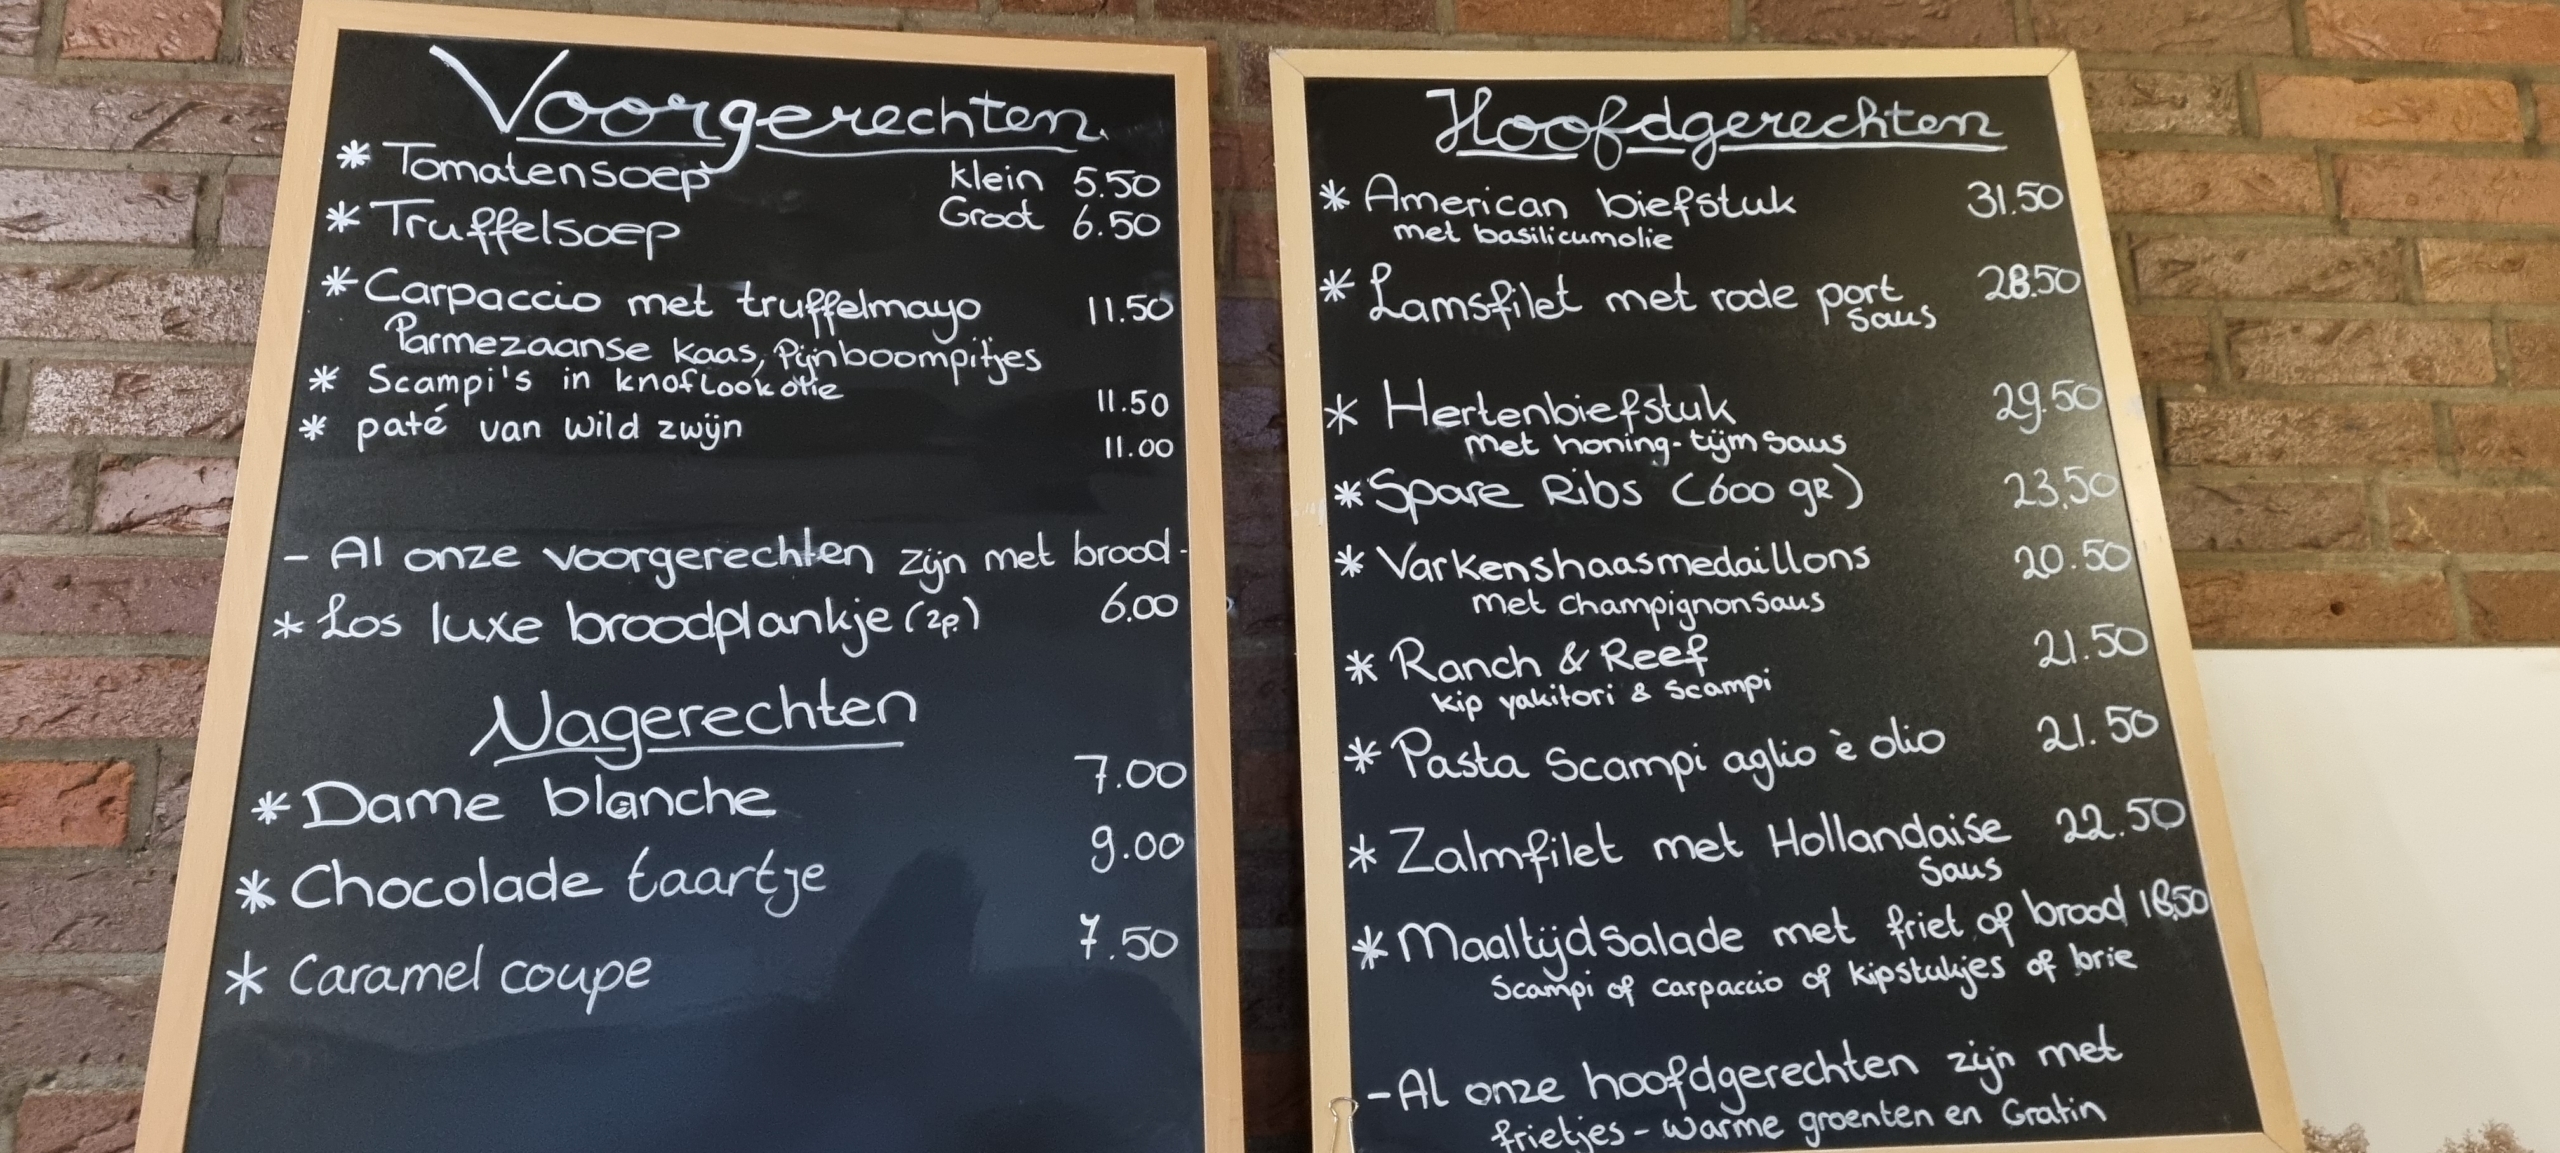 Voorgerechten.
* Tomatensoep klein 5.50
* Truffelsoep Groot 6.50
* Carpaccio met truffelmayo 11.50
Parmezaanse kaas, Pijnboompitjes
* Scampi's in knoflookolie 11.50
* paté van wild zwijn 11.00
- Al onze voorgerechten zijn met brood -
* Los luxe broodplankje (2p.) 6.00
Nagerechten
* Dame blanche 7.00
* Chocolade taartje 9.00
* Caramel coupe 7.50
Hoofdgerechten
* American biefstuk 31.50
met basilicumolie
* Lamsfilet met rode port 28.50
saus
* Hertenbiefstuk 29.50
met honing-tijm saus
* Spare Ribs (600 gR) 23,50
* Varkenshaasmedaillons 20.50
met champignonsaus
* Ranch & Reef 21.50
kip yakitori & scampi
* Pasta Scampi aglio è olio 21.50
* Zalmfilet met Hollandaise 22.50
Saus
* Maaltijdsalade met friet of brood 18,50
Scampi of carpaccio of kipstukjes of brie
- Al onze hoofdgerechten zijn met
frietjes - warme groenten en Gratin